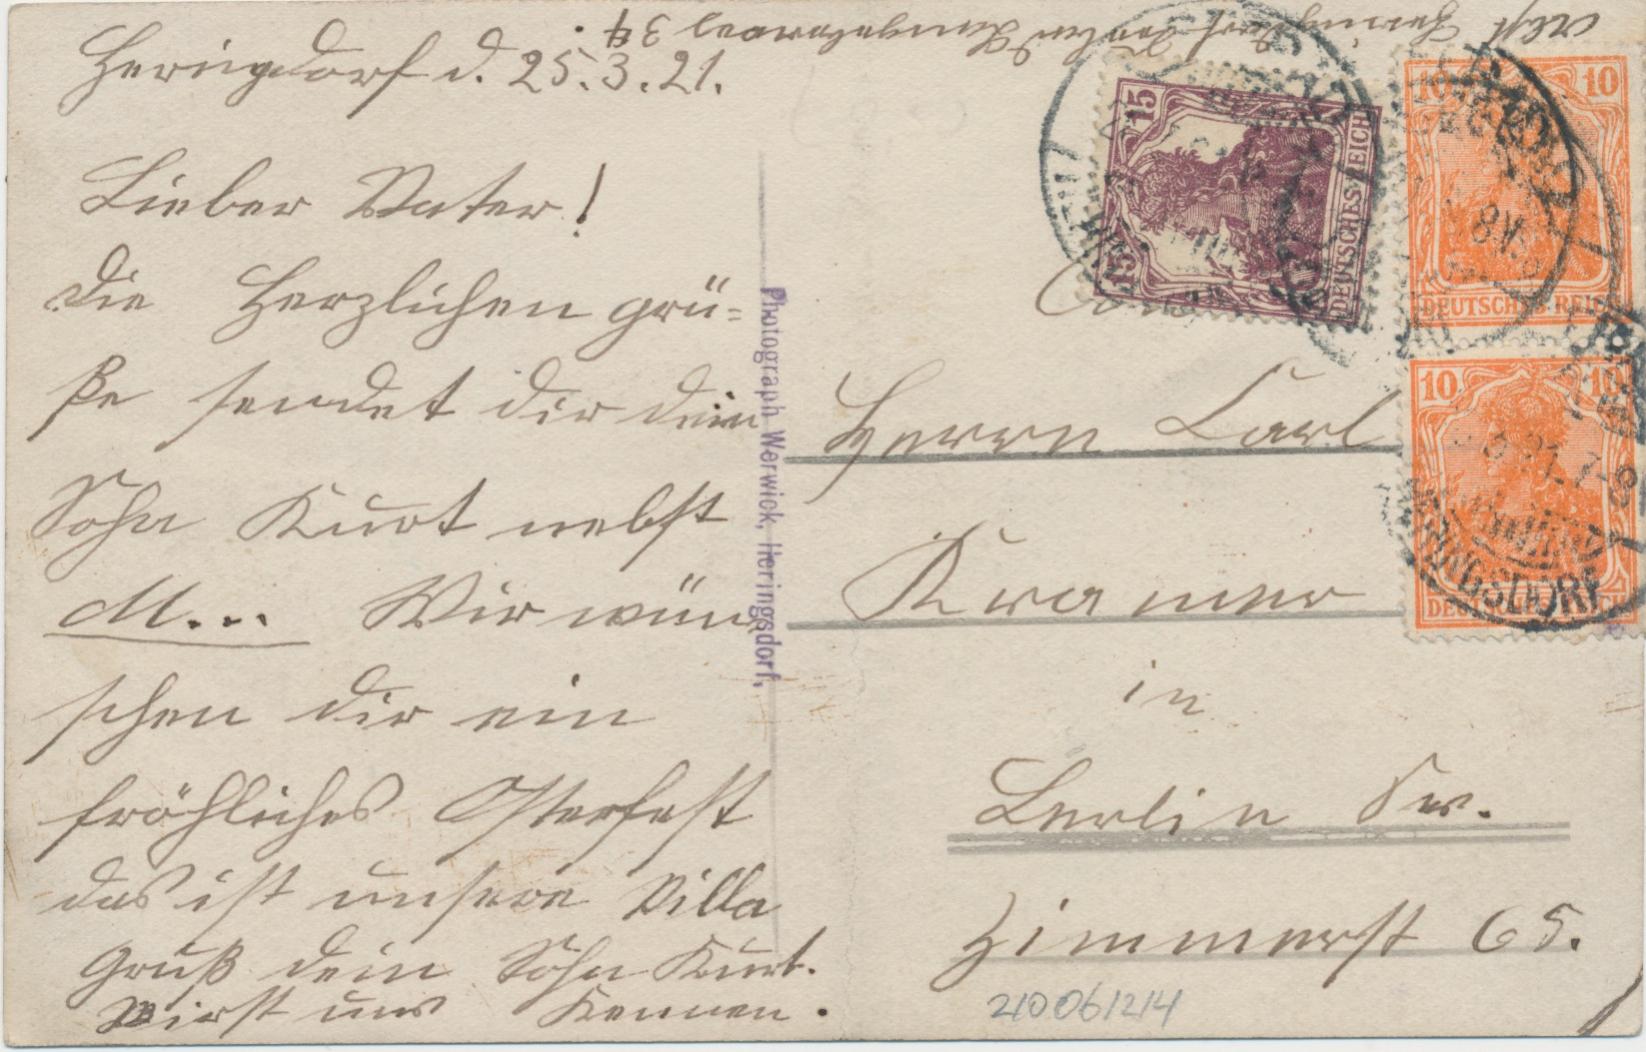 Heringsdorf d. 25.3.21.
Lieber Vater!
Die Herzlichen grü=
ße sendet dir dein
Sohn Kurt nebst
M... Wir wün
schen dir ein
fröhliches Osterfest
das ist unsere Villa
Gruß dein Sohn Kurt.
Wirst uns Kennen.
Photograph Werwick, Heringsdorf.
Herrn Carl
Kramer
in
Berlin Sw.
Zimmerst 65.
210061214
15
15
DEUTSCHES REICH
10 10
DEUTSCHES REICH
10 10
DEUTSCHES REICH